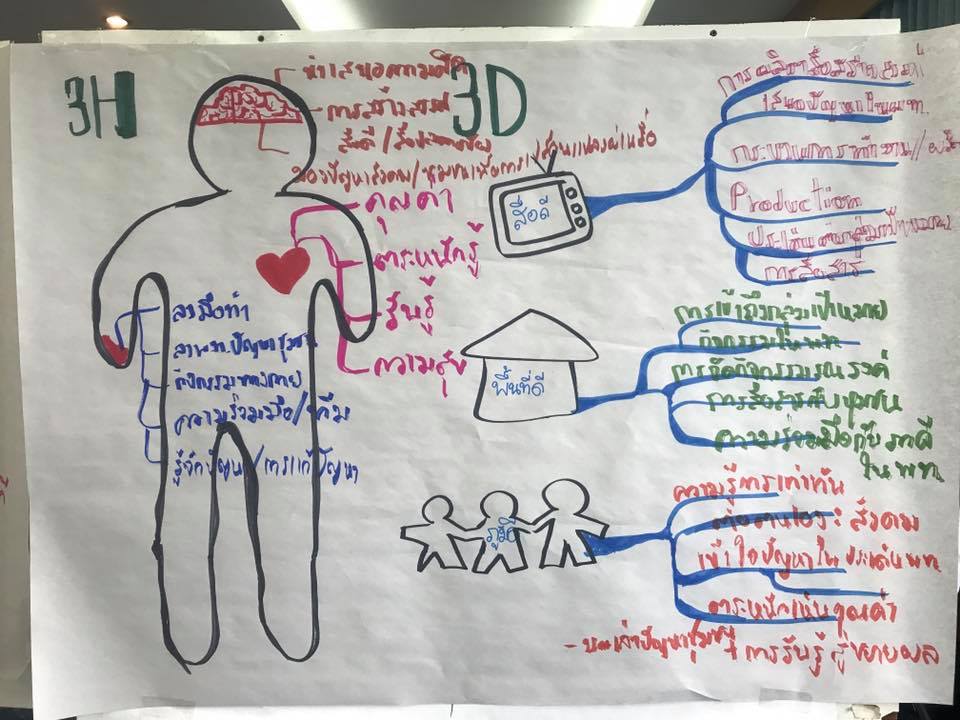 3H
นำเสนอความคิด
การสร้างสรรค์
สื่อดี /
ของปัญหาสังคม/ชุมชนเพื่อการเปลี่ยนแปลงผ่านสื่อ
คุณค่า
ตระหนักรู้
รับรู้
ความสุข
ลงมือทำ
ปัญหาชุมชน
กิจกรรมทางกาย
ความร่วมมือ/ทีม
รู้จักปัญหา/การแก้ปัญหา
3D
สื่อดี
การผลิตสื่อสร้างสรรค์
เสนอปัญหาในพท.
กระบวนการทำงาน//
Production
ประเด็น กลุ่มเป้าหมาย
การสื่อสาร
พื้นที่ดี
การเข้าถึงกลุ่มเป้าหมาย
กิจกรรมในพท.
การจัดกิจกรรมรณรงค์
การสื่อสารกับชุมชน
ความร่วมมือกับภาคี
ในพท.
ภูมิดี
ความรู้การเท่าทัน
ต่อตนเอง : สังคม
เข้าใจปัญหาในประเด็นพท.
ตระหนักเห็นคุณค่า
- บอกเล่าปัญหาชุมชน
+ การรับรู้สู่ขยายผล